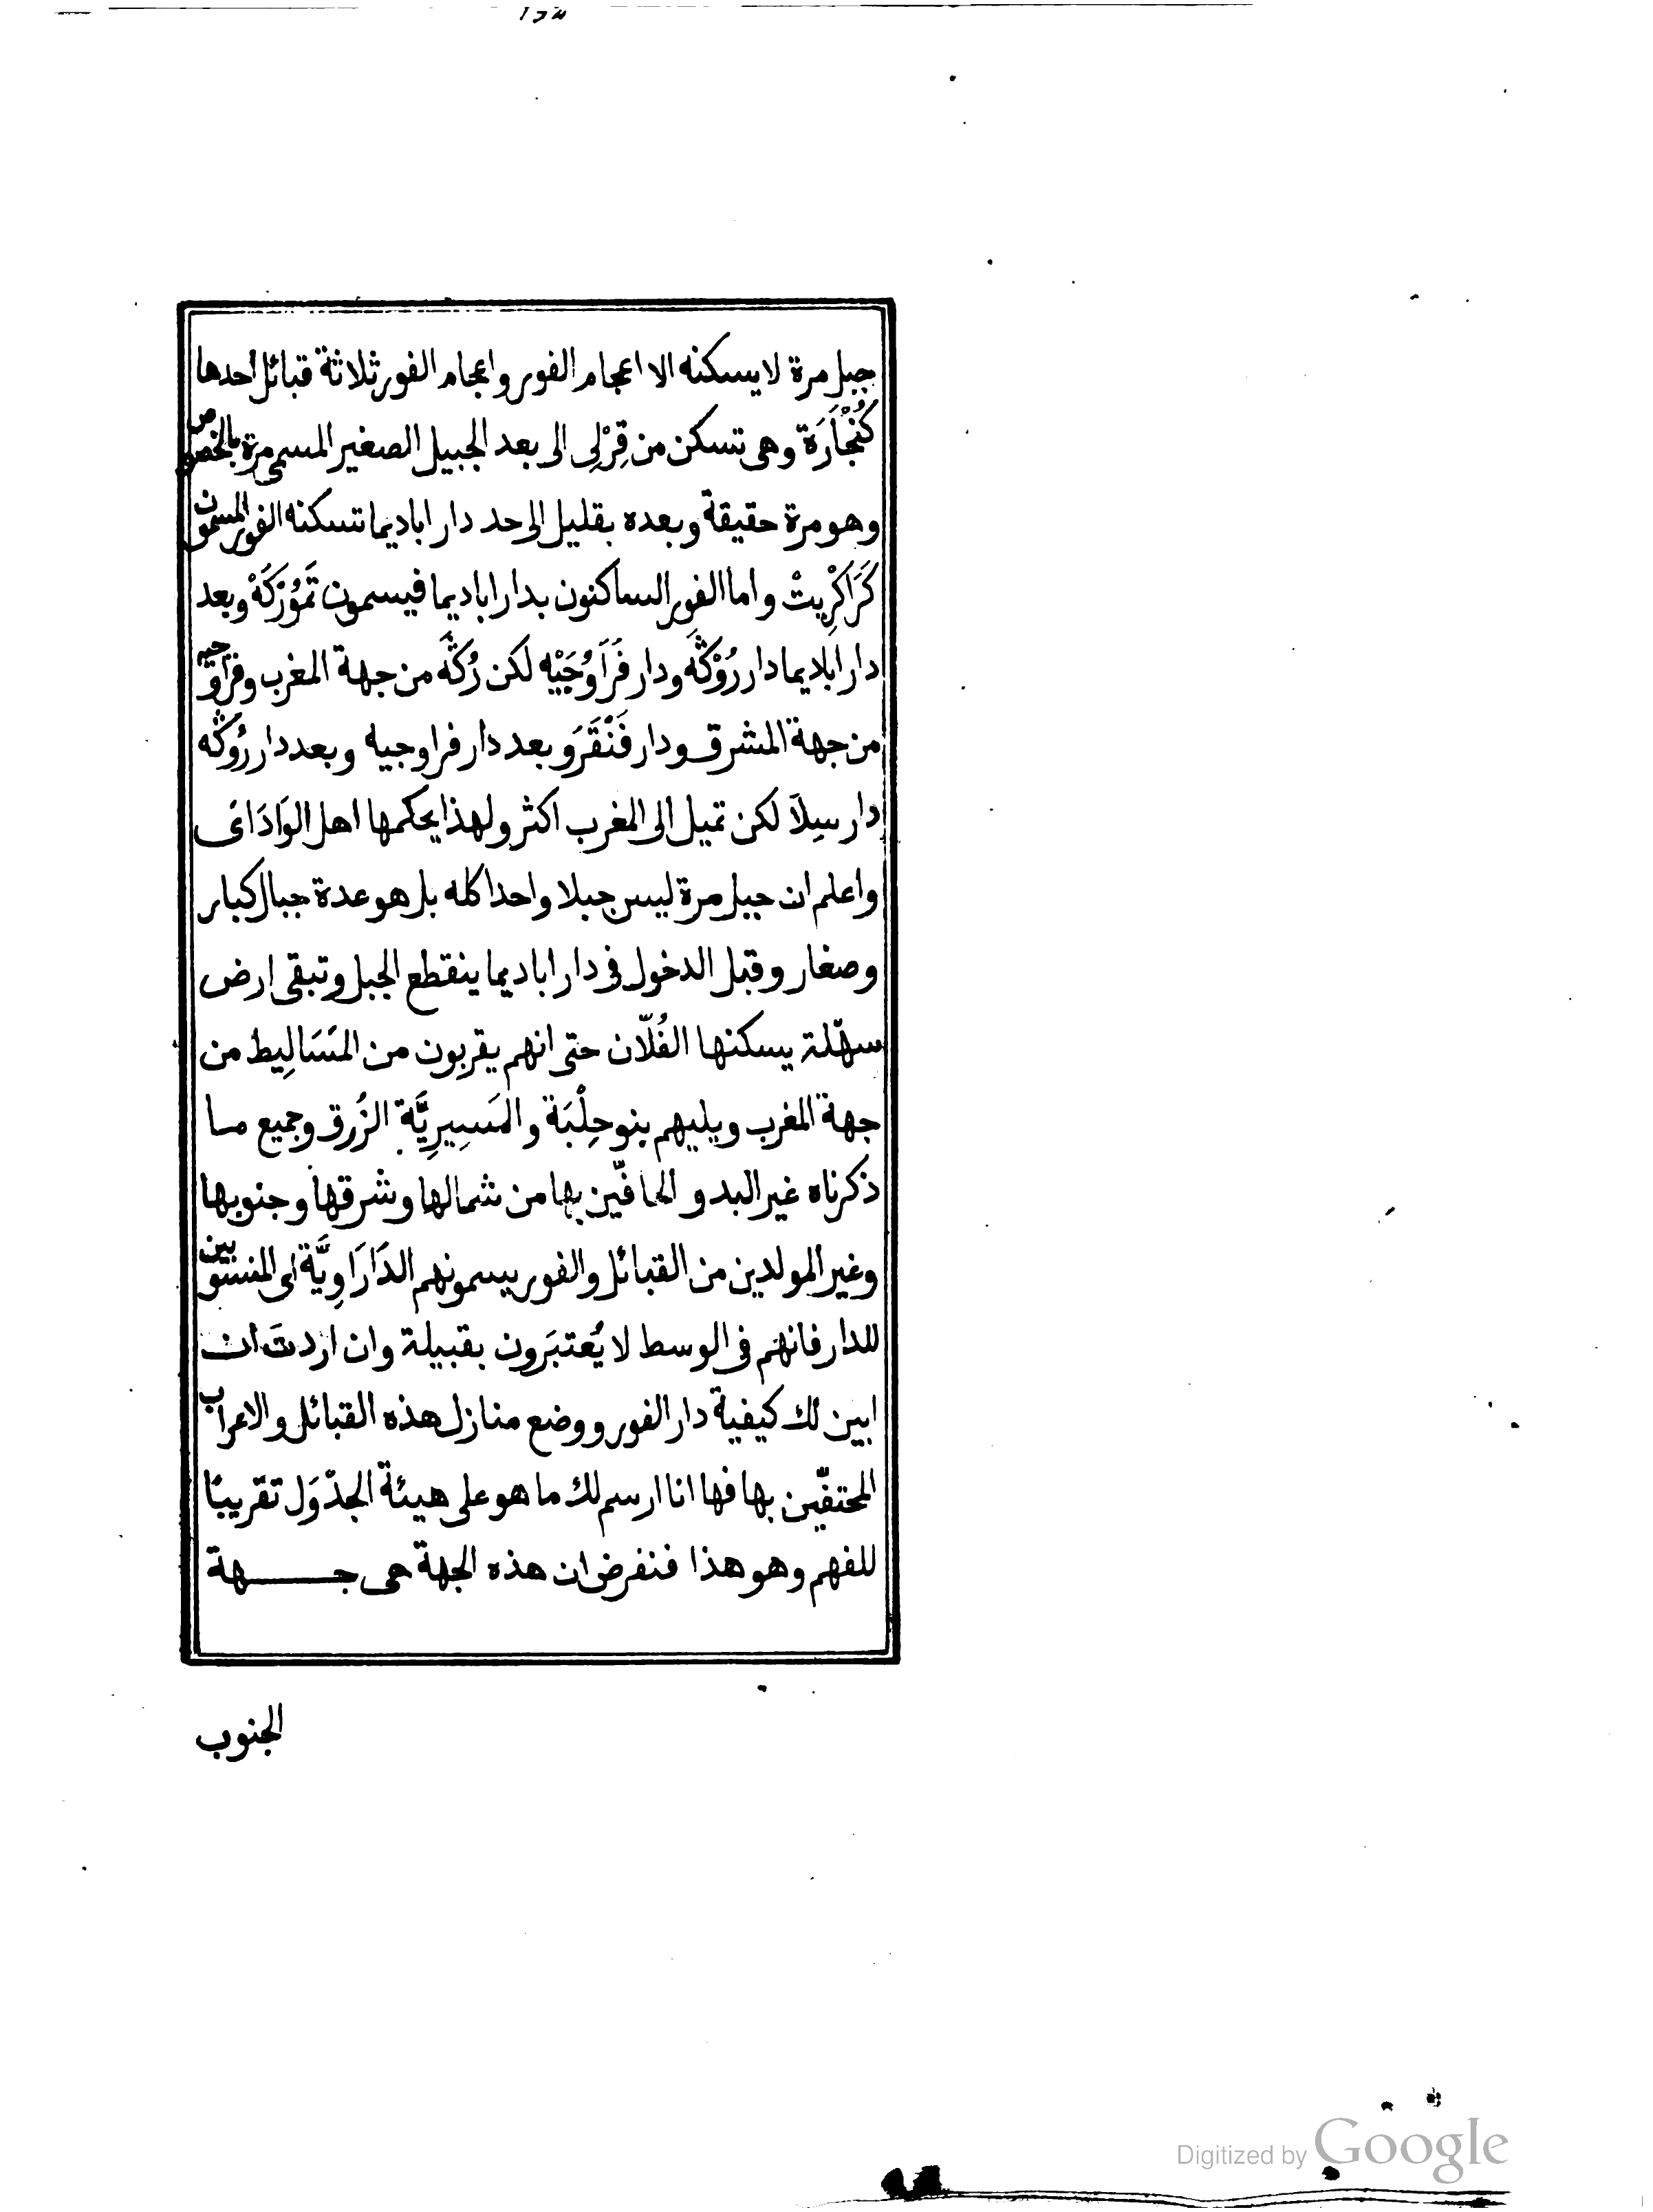 جبل مرة لا يسكنه الا اعجام الفور واعجام الفور ثلاثة قبائل احدها
كُنْجَارَة وهى تسكن من قِرْلِى الى بعد الجبيل الصغير المسمى مرة بالخصوص
وهو مرة حقيقة وبعده بقليل الى حد دار اباديما تسكنه الفور المسمون
كَرَاكْرِيتْ واما الفور الساكنون بدار اباديما فيسمون تَمُوْرْكَهْ وبعد
دار اباديما دار رُوْنْكَه ودار فَرَاوُجَيْه لكن رُنْكَه من جهة المغرب وفراوجيه
من جهة المشرق ودار فَنْقَرَو بعد دار فراوجيه وبعد دار رُونْكه
دار سِلَا لكن تميل الى المغرب اكثر ولهذا يحكمها اهل الوَادَاى
واعلم ان جبل مرة ليس جبلا واحدا كله بل هو عدة جبال كبار
وصغار وقبل الدخول فى دار اباديما ينقطع الجبل وتبقى ارض
سهّلة يسكنها الفُلّان حتى انهم يقربون من المَسَالِيط من
جهة المغرب ويليهم بنو حِلْبَة والمَسِيرِيَّة الزُرق وجميع ما
ذكرناه غير البدو الحافّين بها من شمالها وشرقها وجنوبها
وغير المولدين من القبائل والفور يسمونهم الدَارَاوِيَّة اى المنسوبين
للدار فانهم فى الوسط لا يُعتبَرون بقبيلة وان اردتَ ان
ابين لك كيفية دار الفور ووضع منازل هذه القبائل والاعراب
المحتفّين بها فها انا ارسم لك ما هو على هيئة الجدْوَل تقريبًا
للفهم وهو هذا فنفرض ان هذه الجهة هى جهة
الجنوب
Digitized by Google